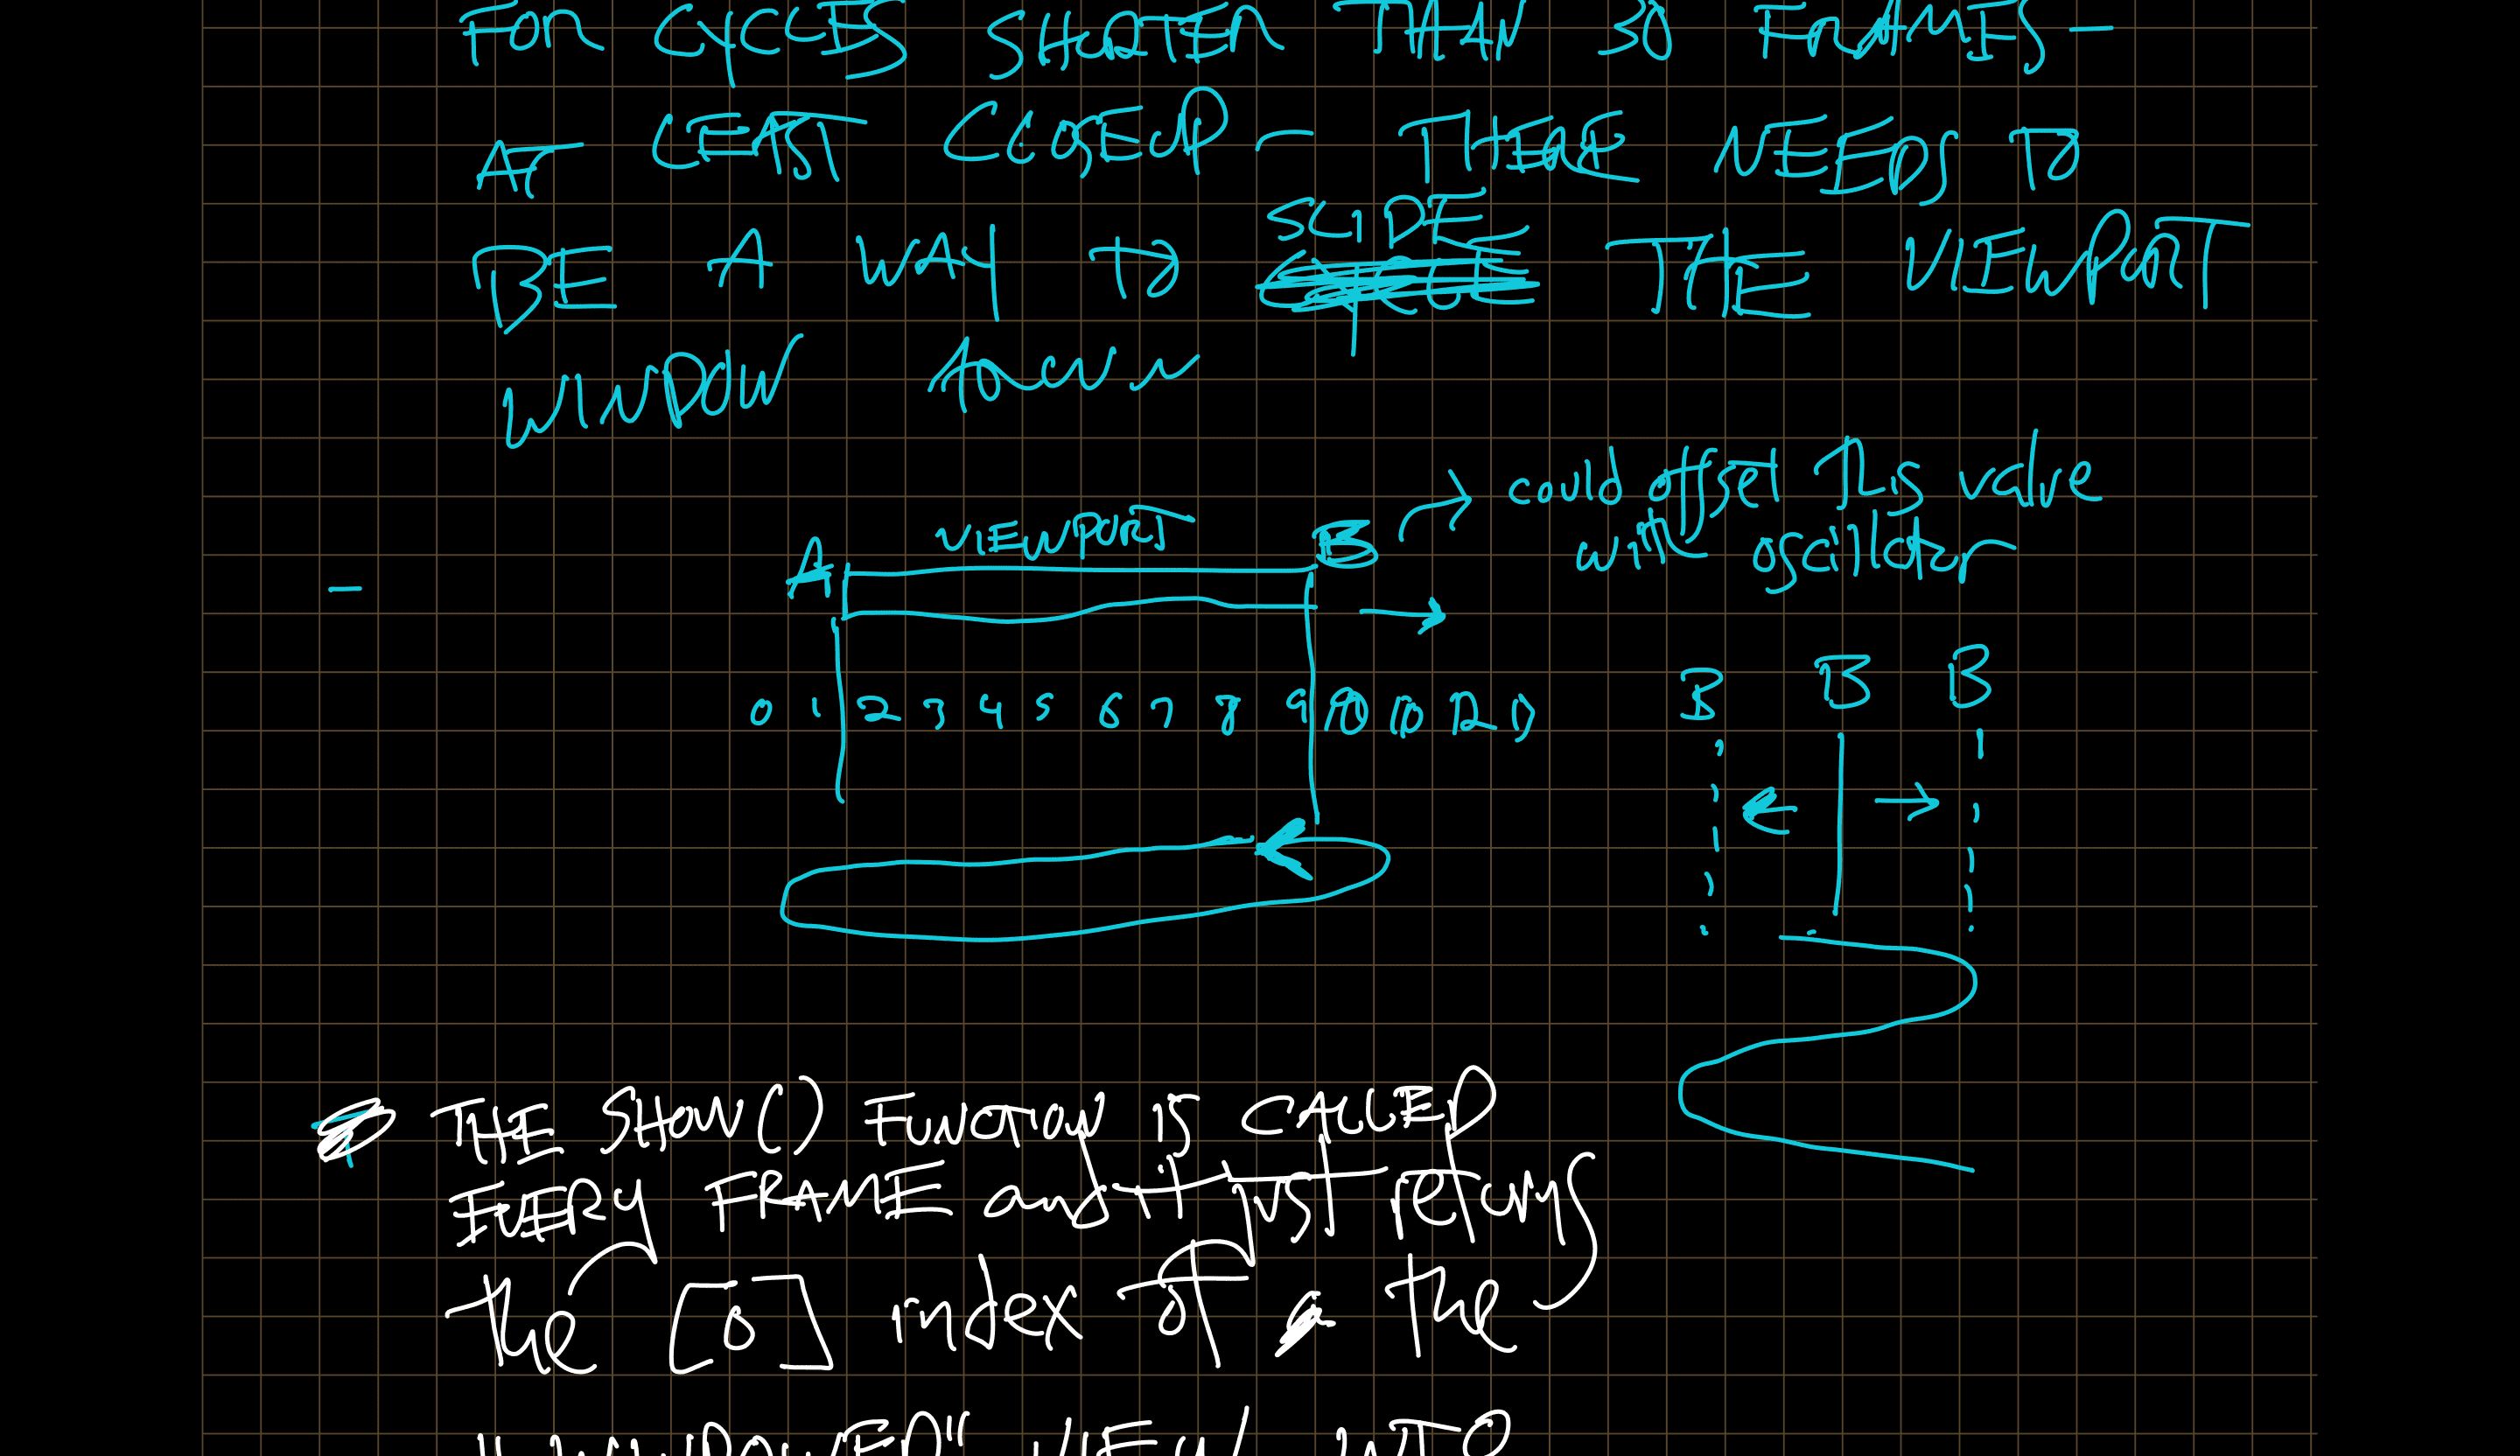 FOR CYCLES SHORTER THAN 30 FRAMES -
AT LEAST CLOSEUP - THERE NEEDS TO
BE A WAY TO SLIDE THE VIEWPORT
WINDOW AROUND
could offset This value
with oscillator
VIEWPORT
A B
-
B B B
0 1 2 3 4 5 6 7 8 9 10 12
THE SHOW() FUNCTION IS CALLED
EVERY FRAME and it just returns
the [0] index of the
"WINDOWED" VIEW INTO